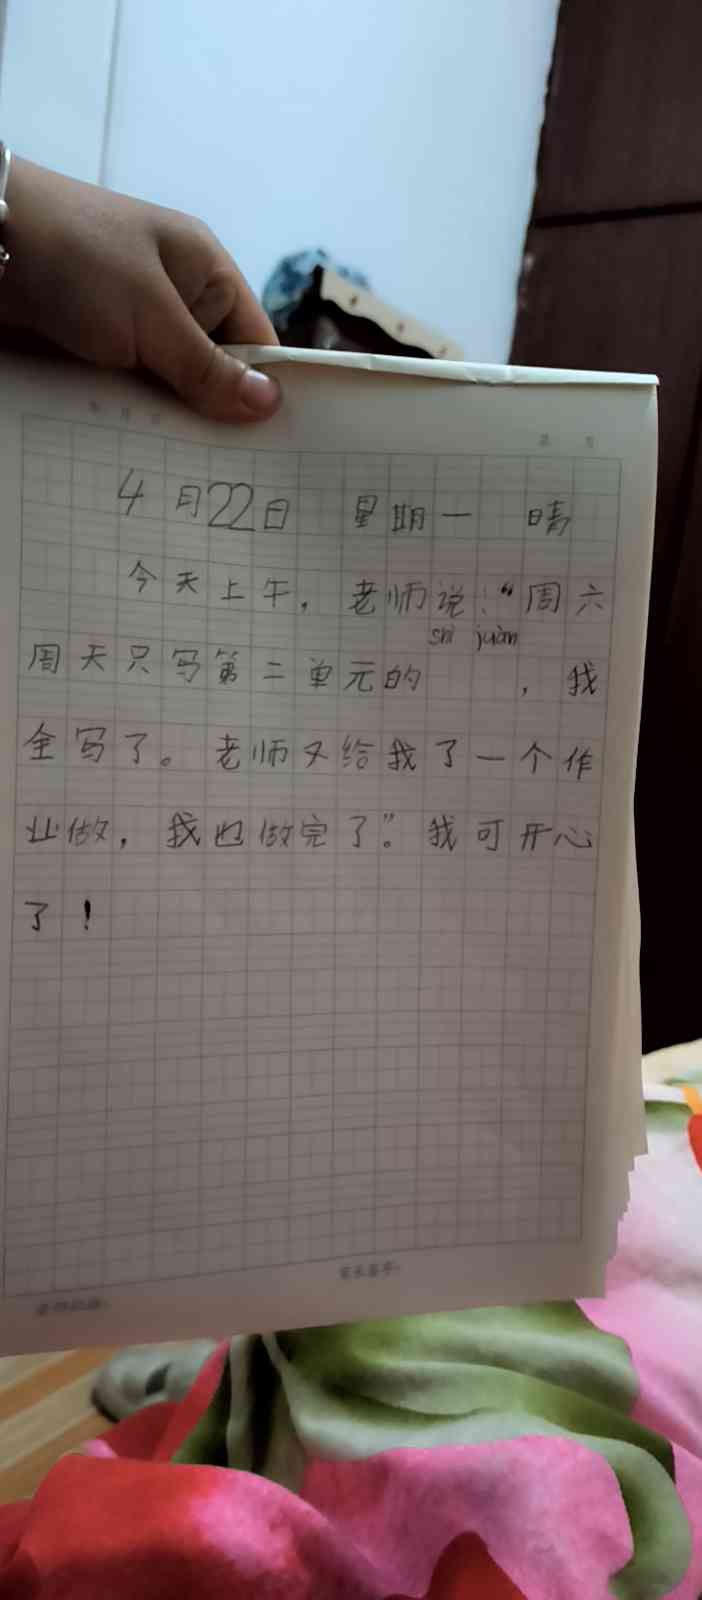 4月22日 星期一 晴
今天上午，老师说：“周六
shì juàn
周天只写第二单元的 ，我
全写了。老师又给我了一个作
业做，我也做完了”。我可开心
了！
家长签字：